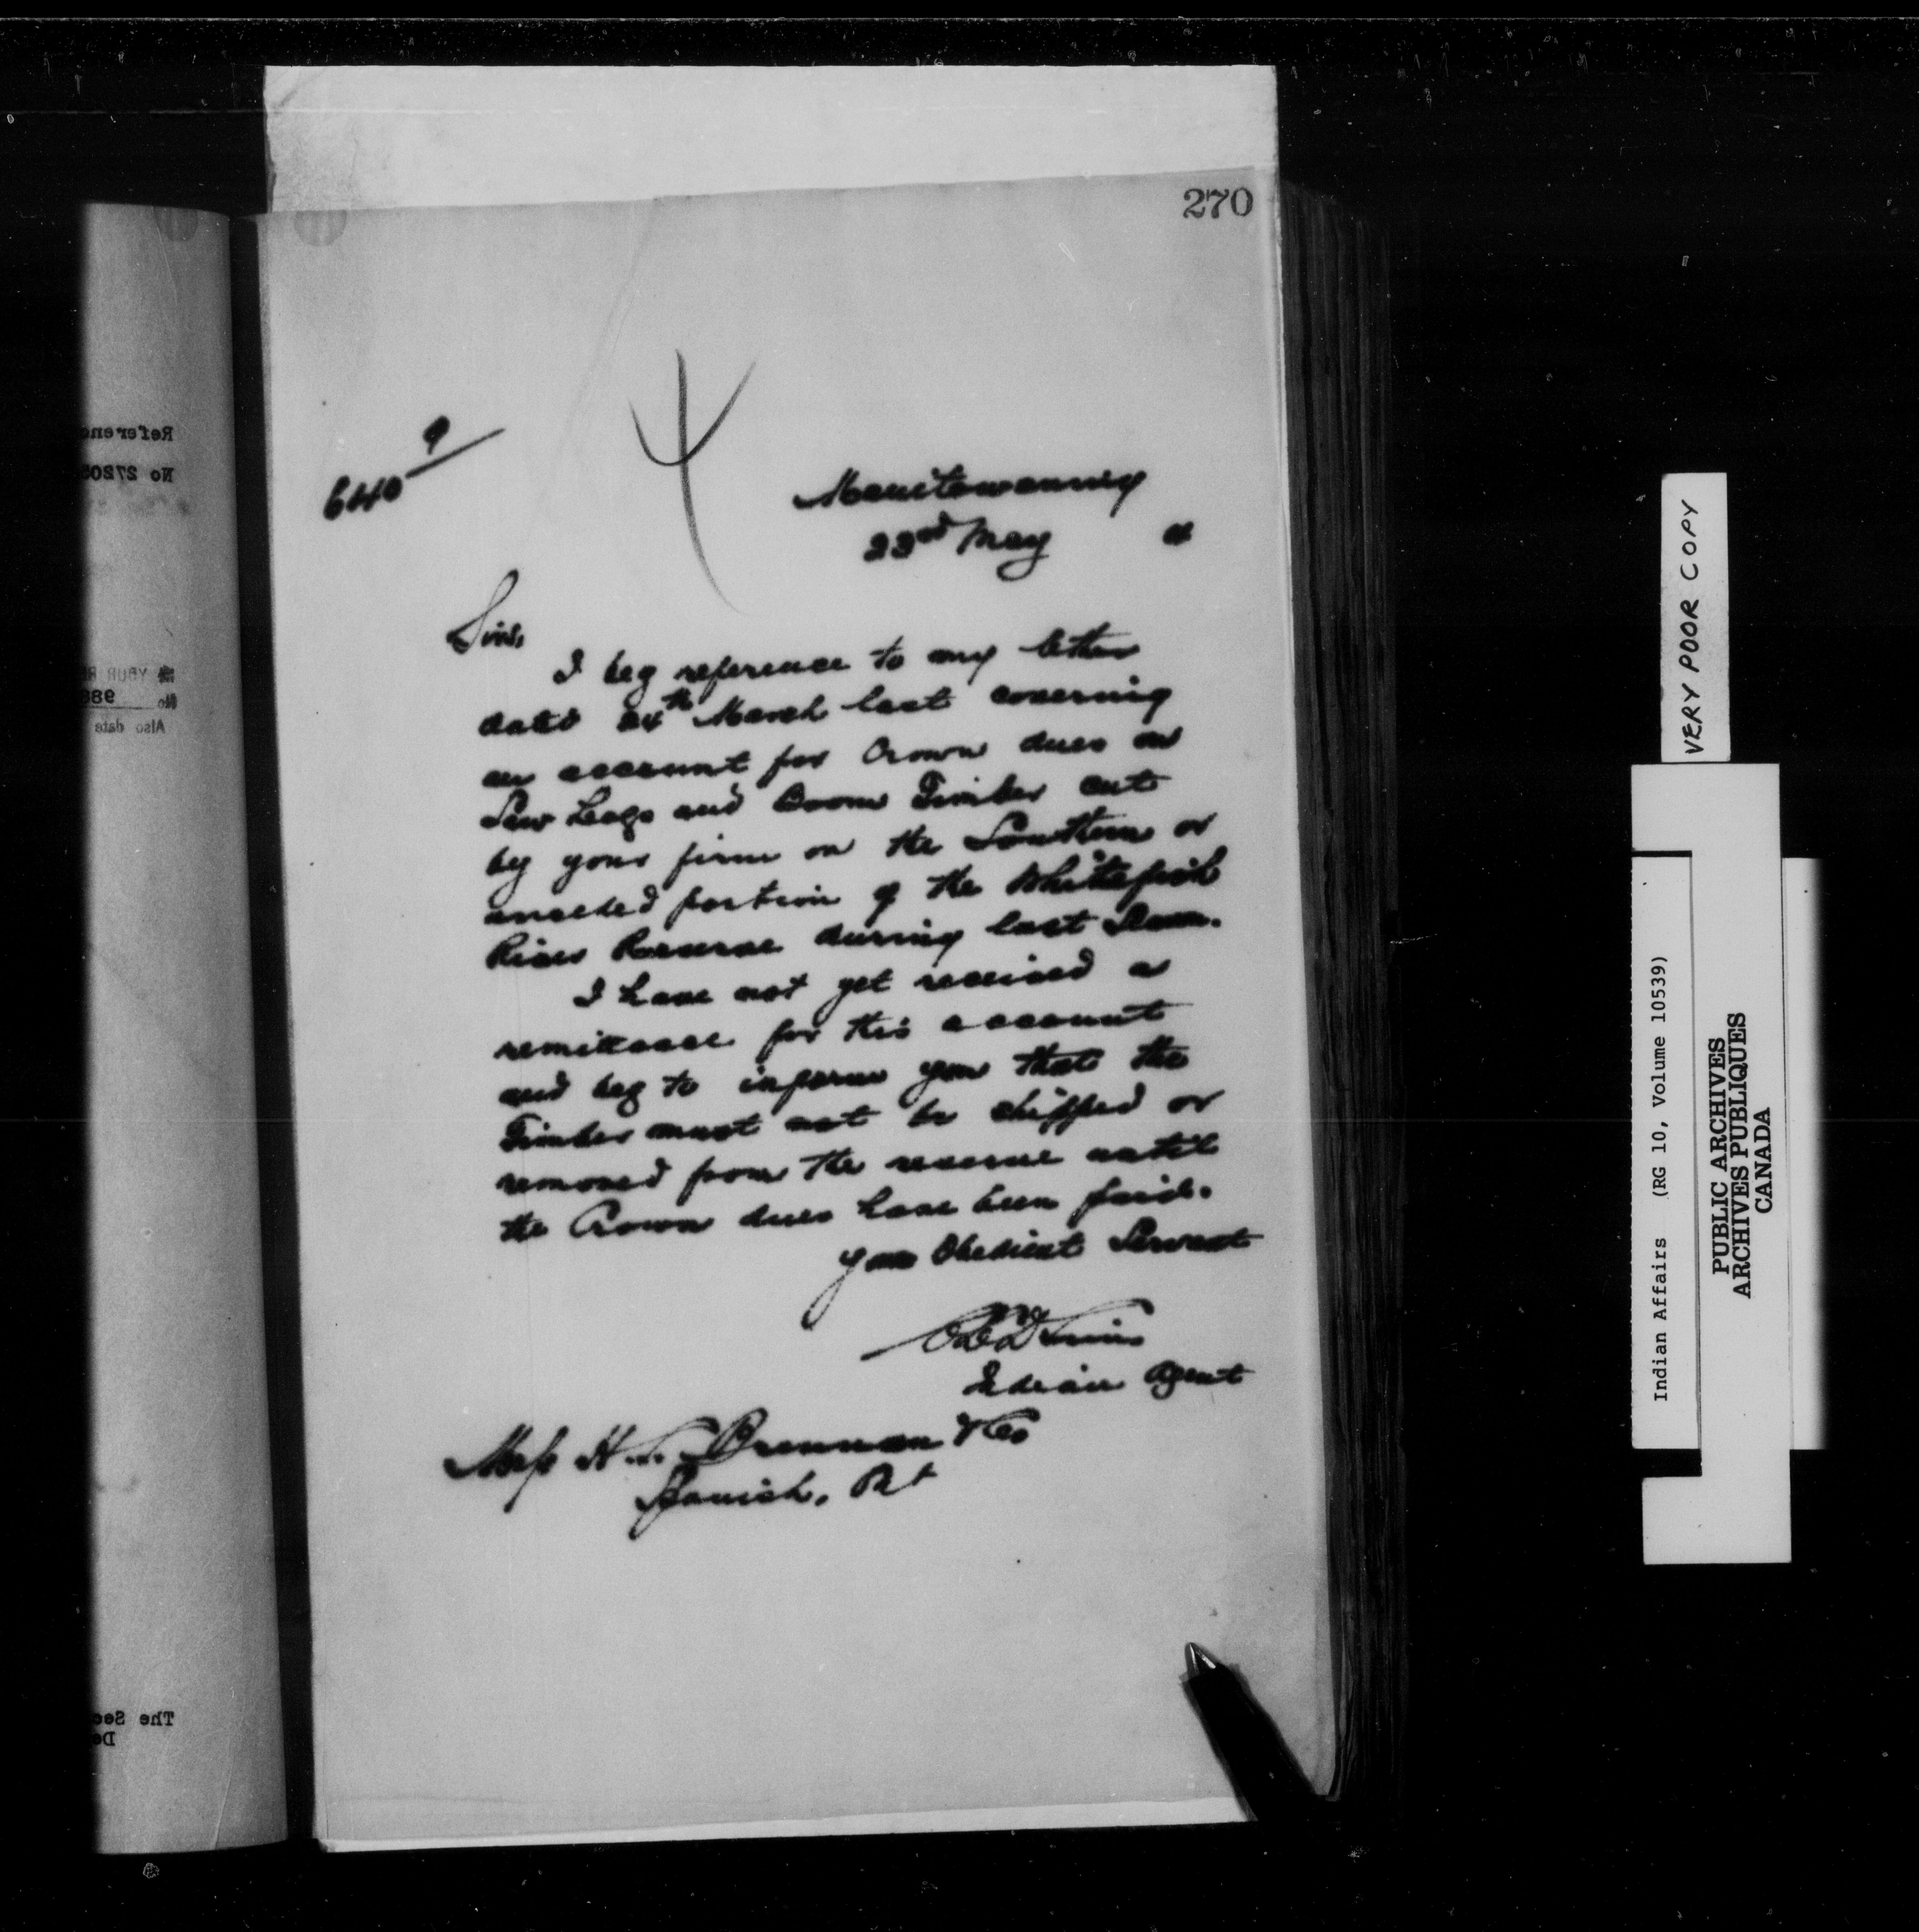 270
640 9
Manitowaning
22nd May 4
Sirs,
I beg reference to my letter
dated 24th March last covering
an account for Crown dues on
Saw Logs and Boom Timber cut
by your firm on the Southern or
unceded portion of the Whitefish
River Reserve during last Season.
I have not yet received a
remittance for this account
and beg to inform you that the
Timber must not be shipped or
removed from the reserve until
the Crown dues have been paid.
Your Obedient Servant
Indian Agent
Mess Brennan & Co
Spanish, Rr
Referenc
No 2720
YOUR R
No 98
Also date
The Sec
De
VERY POOR COPY
Indian Affairs (RG 10, Volume 10539)
PUBLIC ARCHIVES
ARCHIVES PUBLIQUES
CANADA